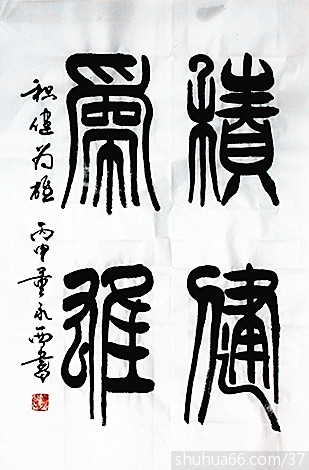 積健
爲雄
积健为雄 丙申董永西書
shuhua66.com/37